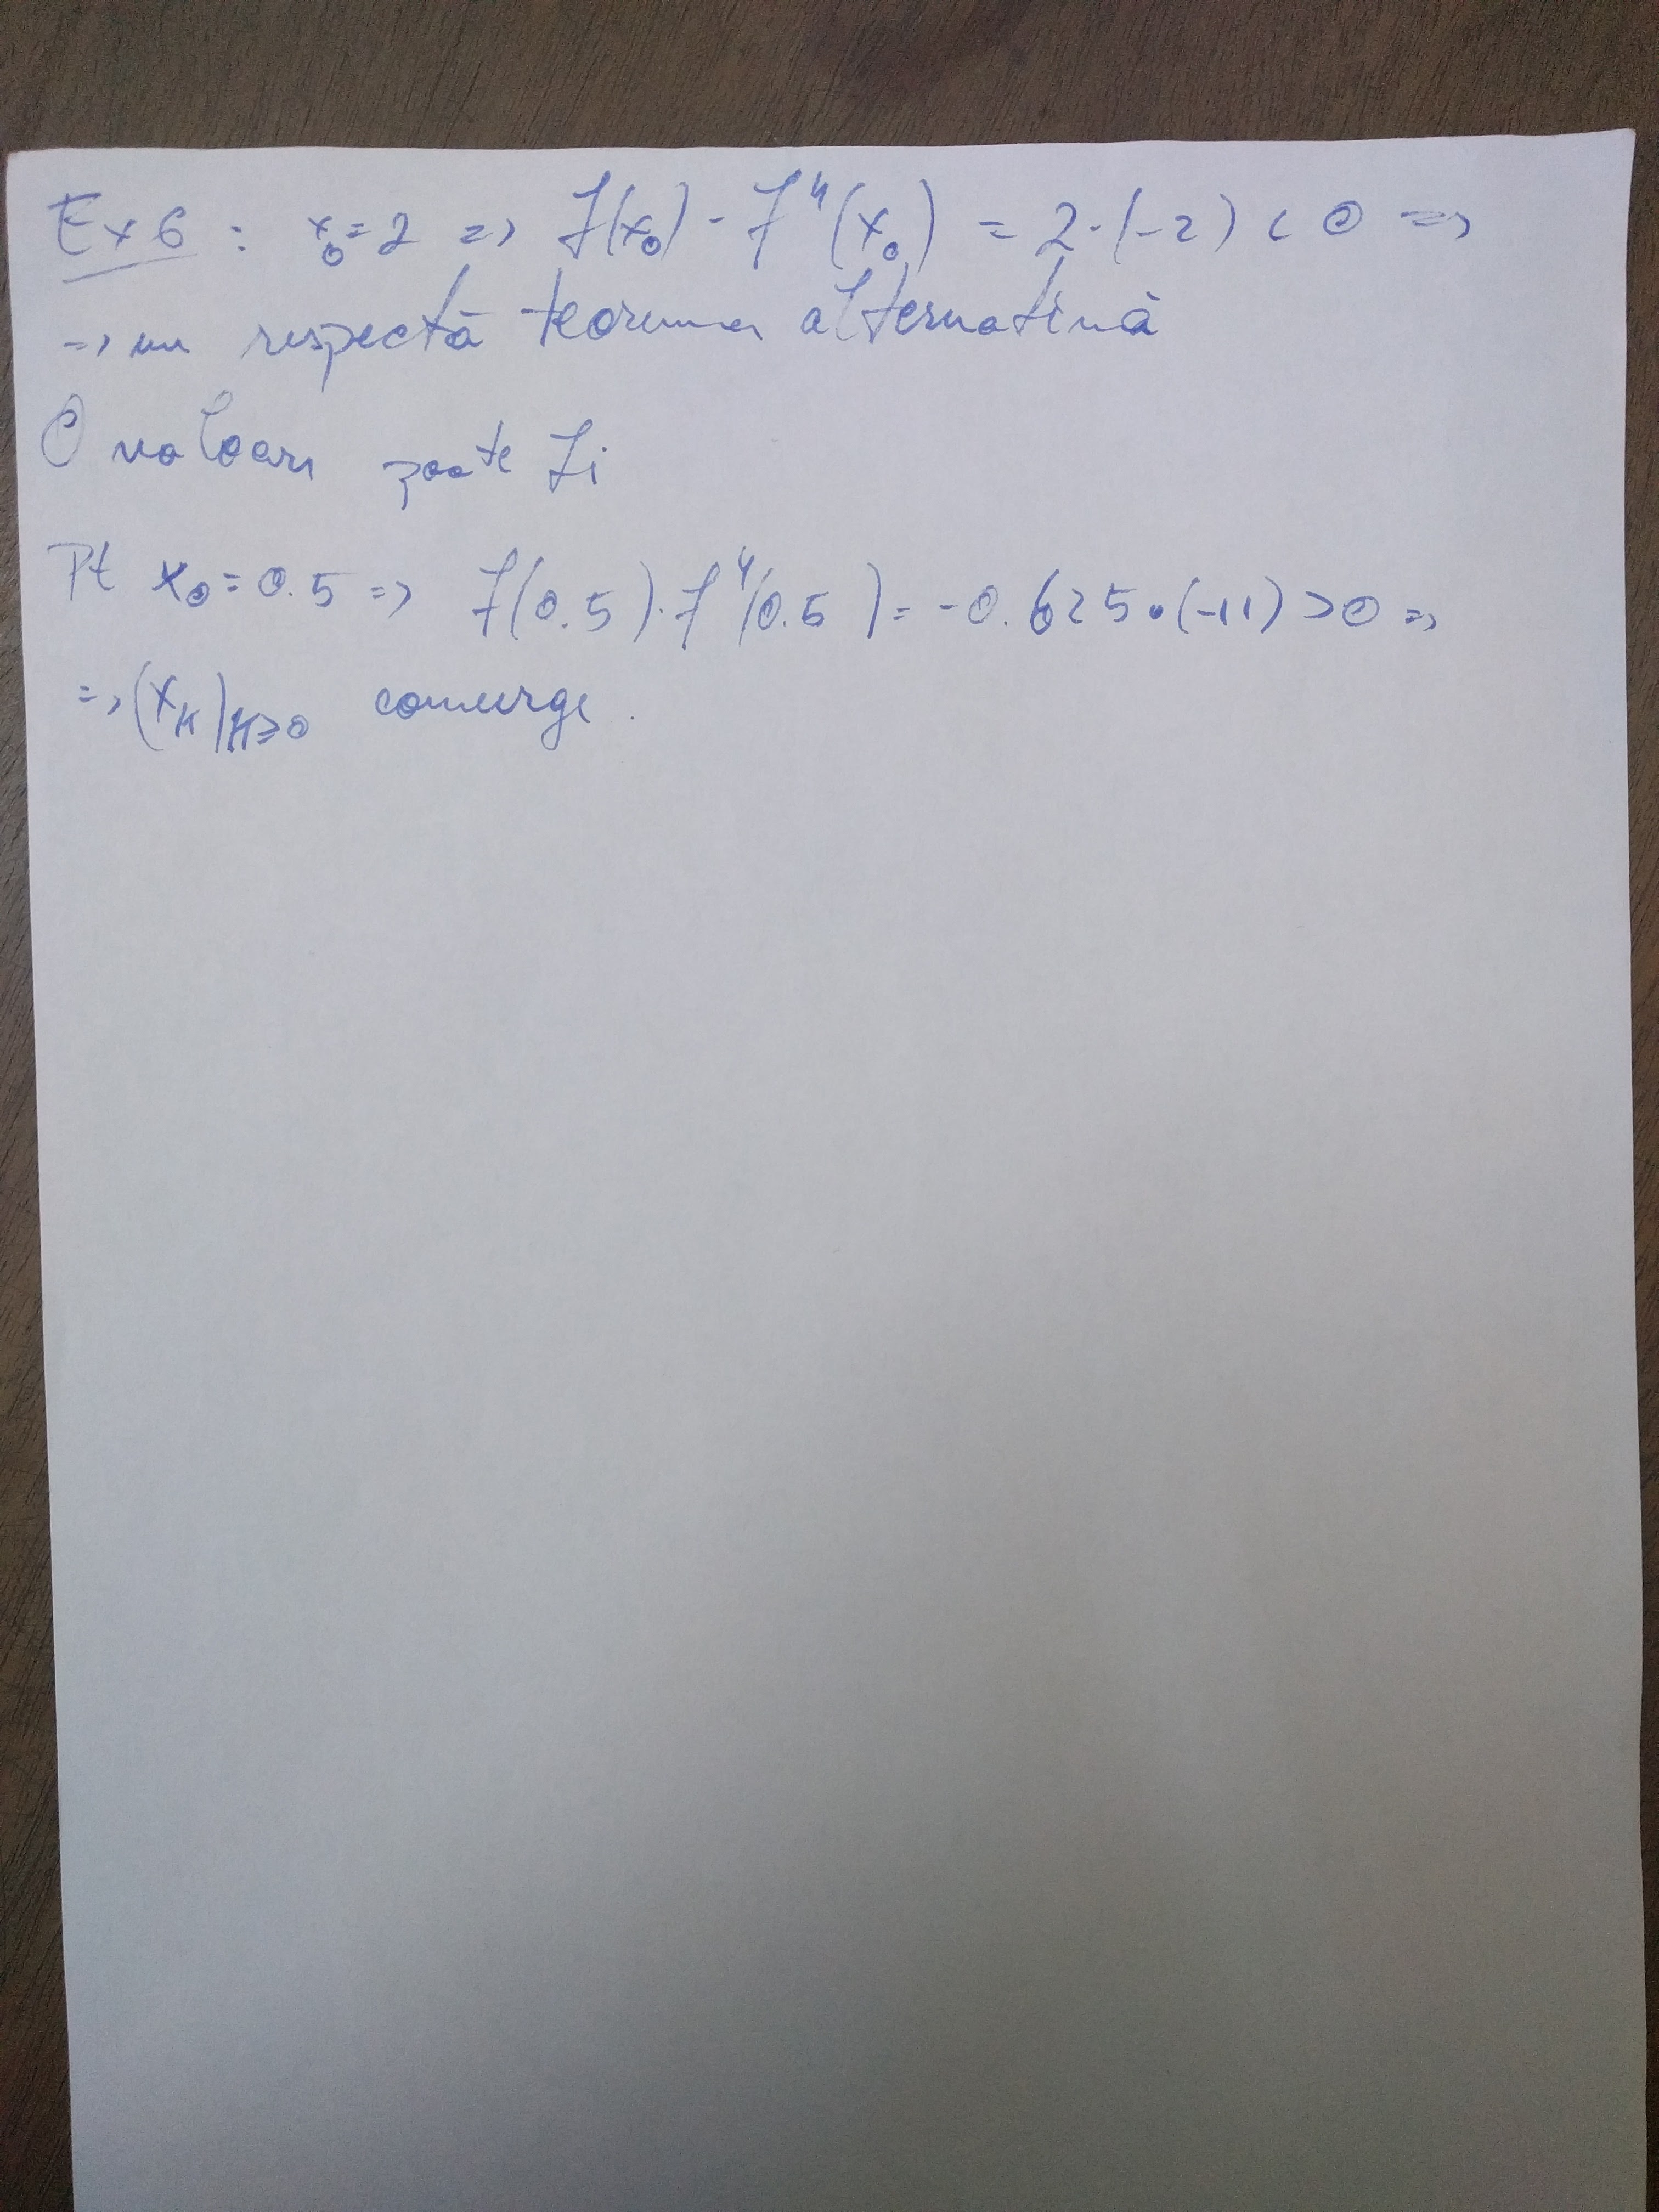 Ex 6 : x₀=2 => f(x₀) · f"(x₀) = 2·(-2) < 0 =>
=> nu respectă teorema alternativă
O valoare poate fi
Pt x₀=0.5 => f(0.5)·f"(0.5) = -0.625·(-11) >0 =>
=> (xₖ)ₖ≥₀ converge.